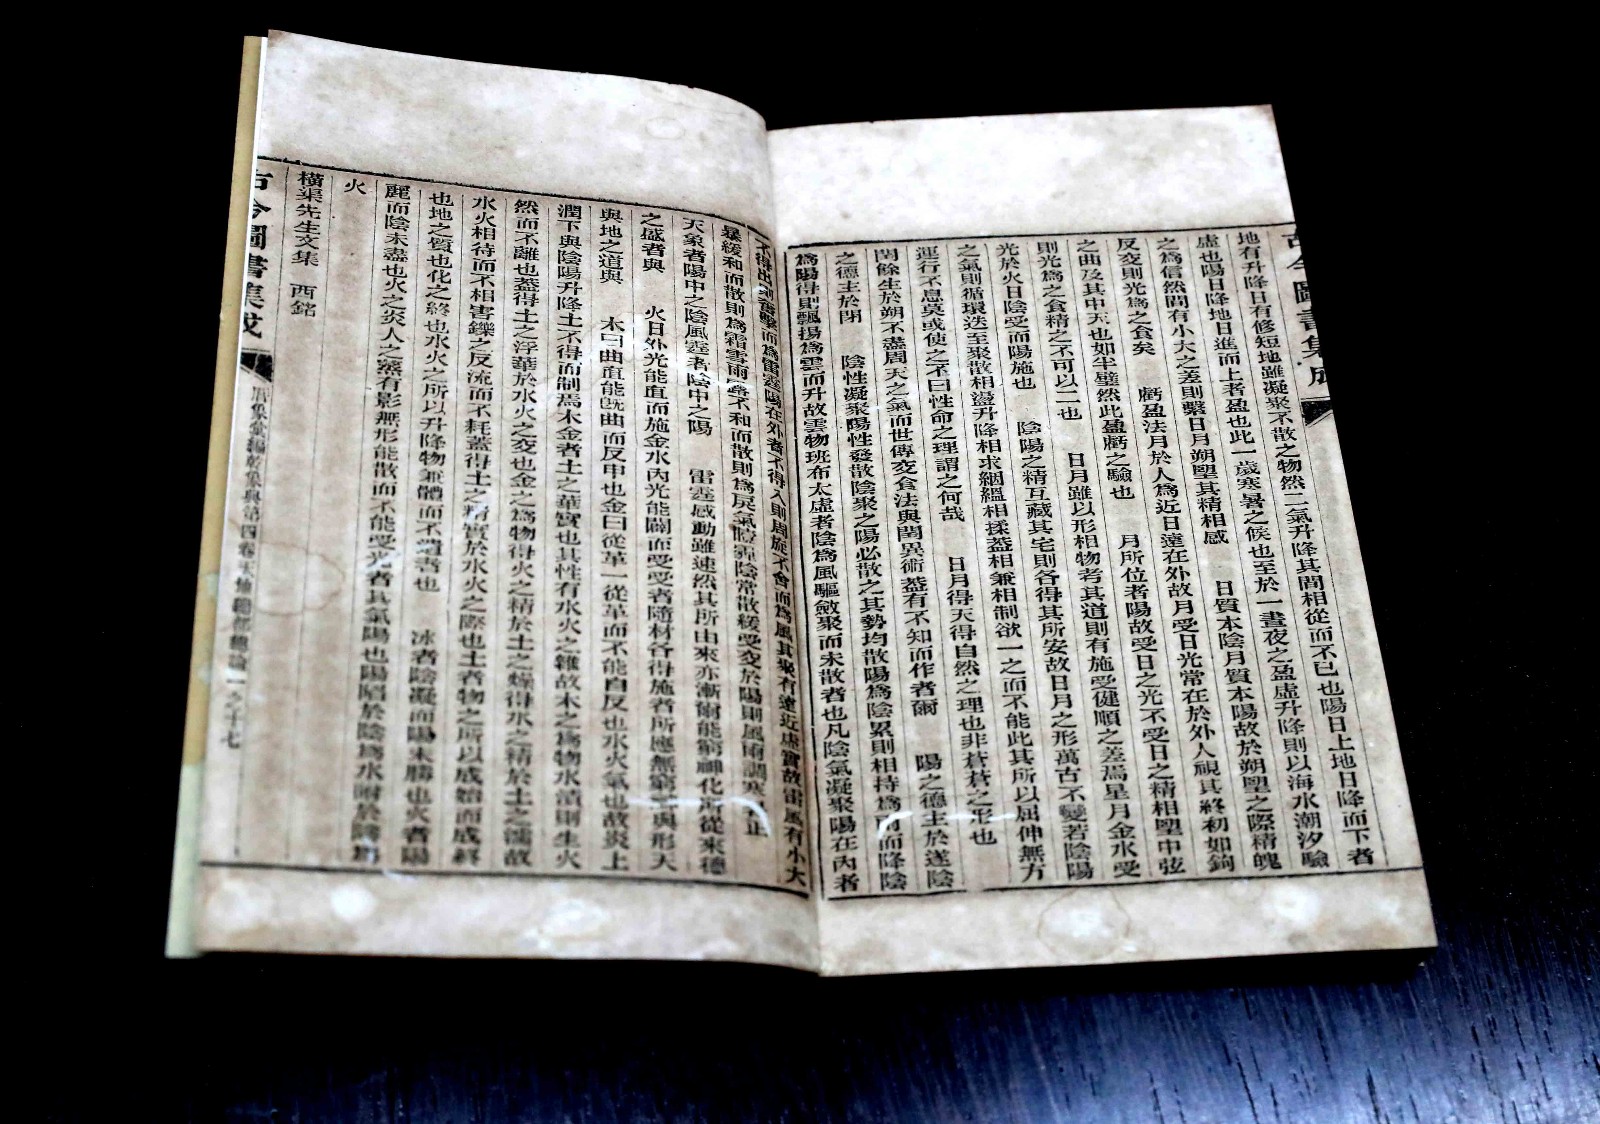 古今圖書集成
地有升降日有修短地雖凝聚不散之物然二氣升降其間相從而不已也陽日上地日降而下者
虛也陽日降地日進而上者盈也此一歲寒暑之候也至於一晝夜之盈虛升降則以海水潮汐驗
之爲信然間有小大之差則繫日月朔朢其精相感　日質本陰月質本陽故於朔朢之際精魄
反交則光爲之食矣　虧盈法月於人爲近日遠在外故月受日光常在於外人視其終初如鉤
之曲及其中天也如半璧然此盈虧之驗也　月所位者陽故受日之光不受日之精相朢中弦
則光爲之食精之不可以二也　日月雖以形相物考其道則有施受健順之差焉星月金水受
光於火日陰受而陽施也　陰陽之精互藏其宅則各得其所安故日月之形萬古不變若陰陽
之氣則循環迭至聚散相盪升降相求絪縕相揉蓋相兼相制欲一之而不能此其所以屈伸無方
運行不息莫或使之不曰性命之理謂之何哉　日月得天得自然之理也非蒼蒼之形也
閏餘生於朔不盡周天之氣而世傳交食法與閏異術蓋有不知而作者爾　陽之德主於遂陰
之德主於閉　陰性凝聚陽性發散陰聚之陽必散之其勢均散陽爲陰累則相持爲雨而降陰
爲陽得則飄揚爲雲而升故雲物班布太虛者陰爲風驅斂聚而未散者也凡陰氣凝聚陽在內者
不得出則奮擊而爲雷霆陽在外者不得入則周旋不舍而爲風其聚有遠近虛實故雷風有小大
暴緩和而散則爲霜雪雨露不和而散則爲戾氣曀霾陰常散緩受交於陽則風雨調寒暑正
天象者陽中之陰風霆者陰中之陽　雷霆感動雖速然其所由來亦漸爾能窮神化所從來德
之盛者與　火日外光能直而施金水內光能闢而受受者隨材各得施者所應無窮神與形天
與地之道與　木曰曲直能旣曲而反申也金曰從革一從革而不能自反也水火氣也故炎上
潤下與陰陽升降土不得而制焉木金者土之華實也其性有水火之雜故木之爲物水漬則生火
然而不離也蓋得土之浮華於水火之交也金之爲物得火之精於土之燥得水之精於土之濡故
水火相待而不相害鑠之反流而不耗蓋得土之精實於水火之際也土者物之所以成始而成終
也地之質也化之終也水火之所以升降物兼體而不遺者也　冰者陰凝而陽未勝也火者陽
麗而陰未盡也火之炎人之蒸有影無形能散而不能受光者其氣陽也陽陷於陰爲水附於陰爲
火
橫渠先生文集　西銘
古今圖書集成　曆象彙編乾象典第四卷天地總部總論一之十七